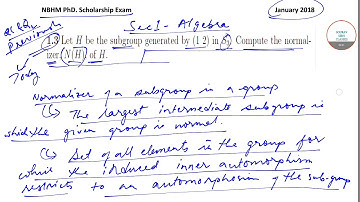 NBHM PhD. Scholarship Exam
Sec I - Algebra
January 2018
previous
1.3 Let H be the subgroup generated by (1 2) in S₃. Compute the normal-
izer, N(H) of H.
Today
Normalizer of a subgroup in a group
↳ The largest intermediate subgroup in
which the given group is normal.
↳ Set of all elements in the group for
which the induced inner automorphism
restricts to an automorphism of the sub-group